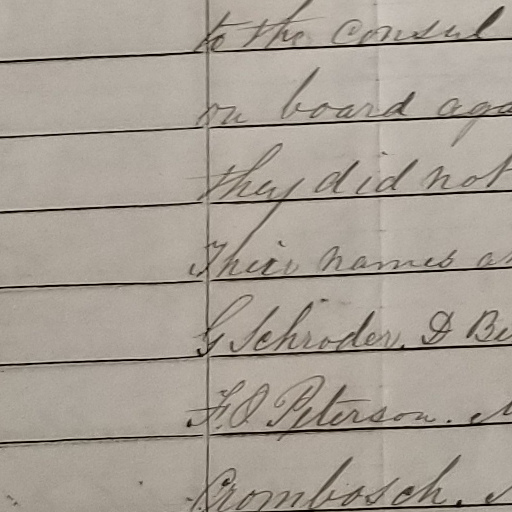 to the Consul
on board aga
they did not
Their names a
G Schroder. D Be
F. O Peterson.
Crombosch.